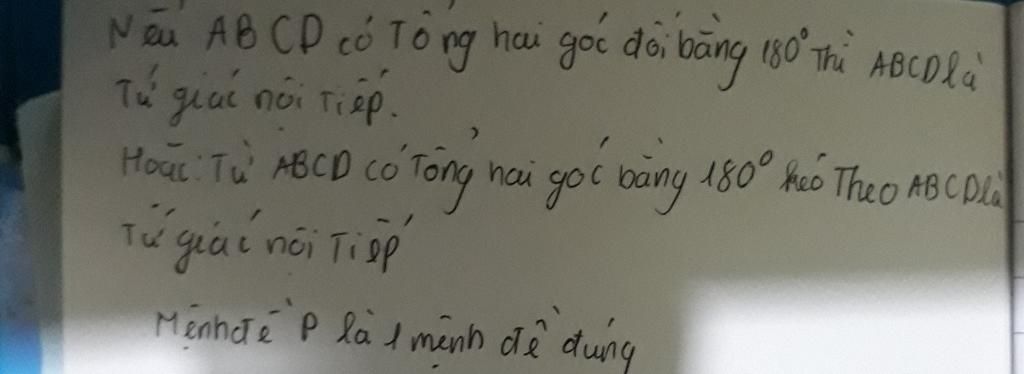 Nếu ABCD có Tổng hai góc đối bằng 180° Thì ABCD là
Tứ giác nội Tiếp.
Hoặc: Từ ABCD có Tổng hai góc bằng 180° kéo Theo ABCD là
Tứ giác nội Tiếp
Mệnh đề P là 1 mệnh đề đúng